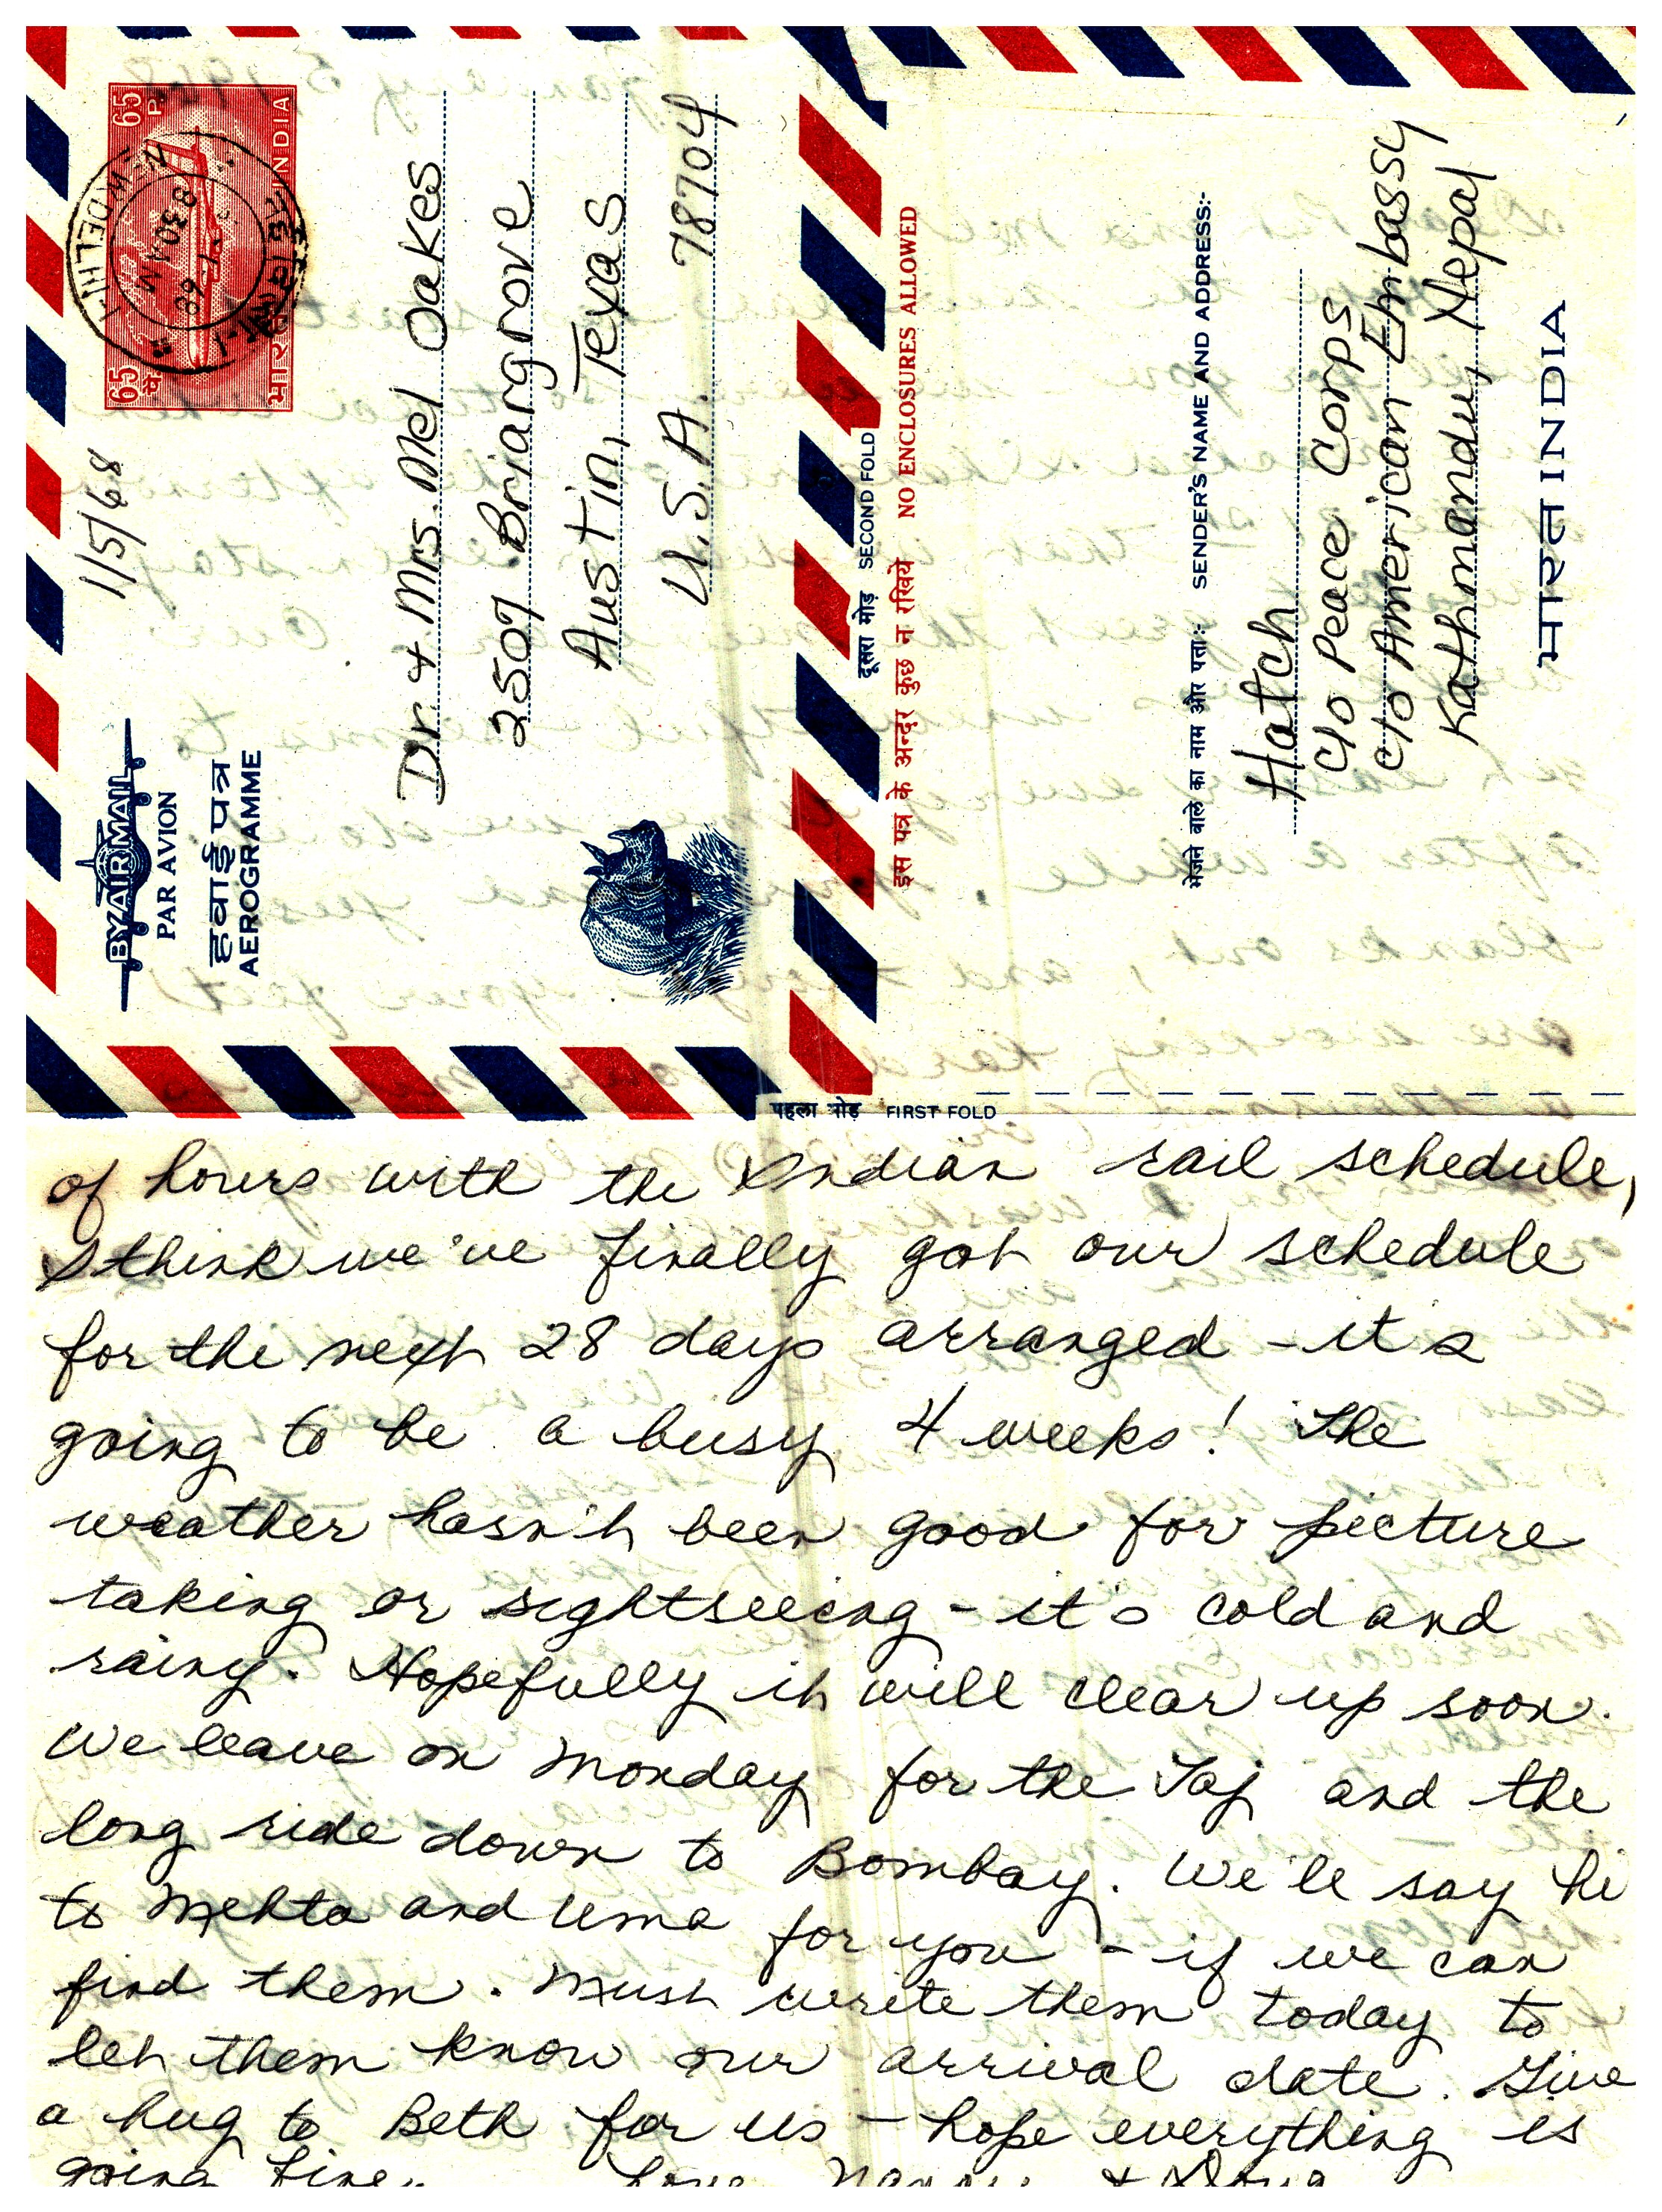 1/5/68
BY AIR MAIL
PAR AVION
हवाई पत्र
AEROGRAMME
65 P.
65 प.
भारत INDIA
NEW DELHI
8 30 AM
Dr. & Mrs. Mel Oakes
2507 Briargrove
Austin, Texas
U.S.A. 78704
दूसरा मोड़ SECOND FOLD
इस पत्र के अन्दर कुछ न रखिये NO ENCLOSURES ALLOWED
भेजने वाले का नाम और पता:- SENDER'S NAME AND ADDRESS:-
Hatch
c/o Peace Corps
c/o American Embassy
Kathmandu, Nepal
भारत INDIA
पहला मोड़ FIRST FOLD
of hours with the Indian rail schedule,
I think we've finally got our schedule
for the next 28 days arranged - it's
going to be a busy 4 weeks! The
weather hasn't been good for picture
taking or sightseeing - it's cold and
rainy. Hopefully it will clear up soon.
We leave on Monday for the Taj and the
long ride down to Bombay. We'll say hi
to Mehta and Uma for you - if we can
find them. Must write them today to
let them know our arrival date. Give
a hug to Beth for us - hope everything is
going fine. Love, & Doug